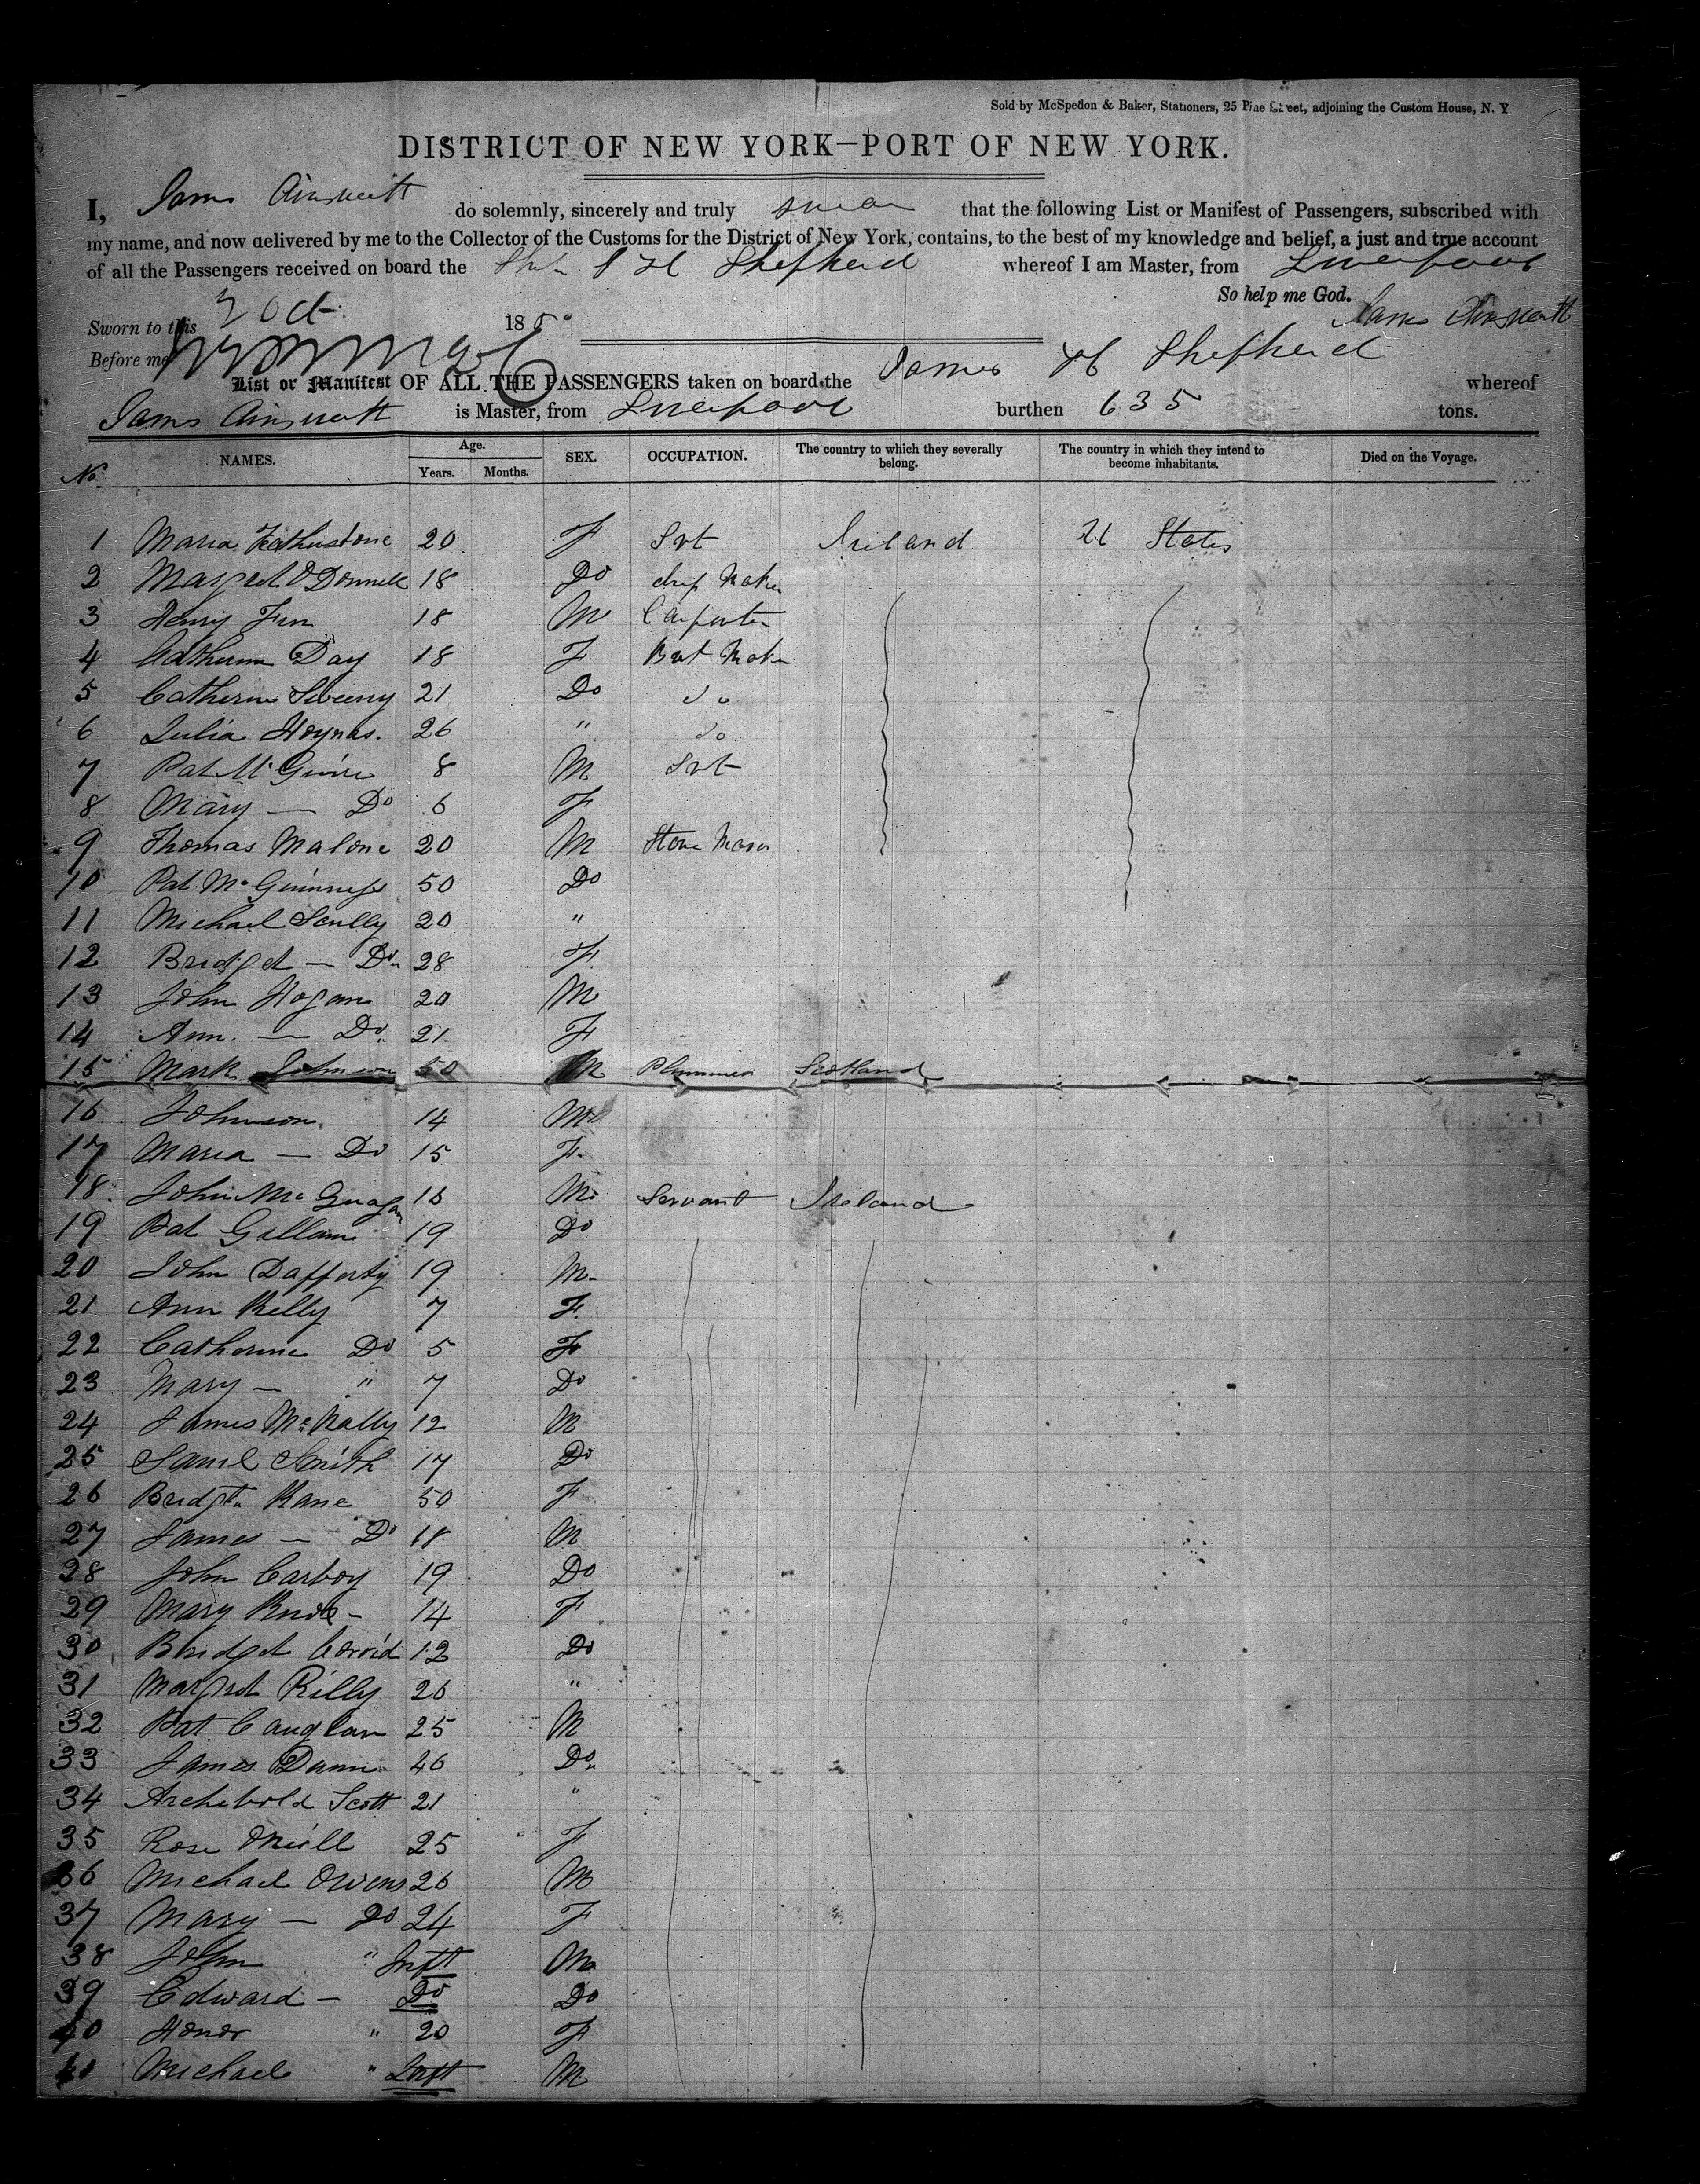 Sold by McSpedon & Baker, Stationers, 25 Pine Street, adjoining the Custom House, N. Y
DISTRICT OF NEW YORK—PORT OF NEW YORK.
I, James do solemnly, sincerely and truly swear that the following List or Manifest of Passengers, subscribed with
my name, and now delivered by me to the Collector of the Customs for the District of New York, contains, to the best of my knowledge and belief, a just and true account
of all the Passengers received on board the Ship J H Shepherd whereof I am Master, from Liverpool
So help me God.
Sworn to this Oct 1850 James
Before me
List or Manifest OF ALL THE PASSENGERS taken on board the James H Shepherd whereof
James is Master, from Liverpool burthen 635 tons.
No. NAMES. Age. Years. Months. SEX. OCCUPATION. The country to which they severally belong. The country in which they intend to become inhabitants. Died on the Voyage.
1 Maria 20 F Svt Ireland U States
2 Margret O'Donnell 18 Do Maker
3 Henry 18 M Carpenter
4 Catherine Day 18 F Maker
5 Catherine Sweeny 21 Do Do
6 Julia 26 " Do
7 Pat McGuire 8 M Svt
8 Mary — Do 6 F
9 Thomas Malone 20 M Stone Mason
10 Pat McGuinness 50 Do
11 Michael Scully 20 "
12 Bridget — Do 28 F
13 John Hogan 20 M
14 Ann. — Do. 21 F
15 Mark Johnson 50 M Plummer Scotland
16 Johnson 14 M
17 Maria — Do 15 F.
18 John 16 M Servant Ireland
19 Pat 19 Do
20 John Dafferty 19 M
21 Ann Kelly 7 F.
22 Catherine Do 5 F
23 Mary — " 7 Do
24 James McNally 12 M
25 Saml Smith 17 Do
26 Bridgt. Kane 50 F
27 James — Do 18 M
28 John Carboy 19 Do
29 Mary 14 F
30 Bridget 12 Do
31 Margret Rilly 26 "
32 Pat Cauglan 25 M
33 James 26 Do
34 Archebold Scott 21 "
35 Rose ONeill 25 F
36 Michael Owens 26 M
37 Mary — Do 24 F
38 John " Inft M
39 Edward — Do Do
40 Honor " 20 F
41 Michael " Inft M